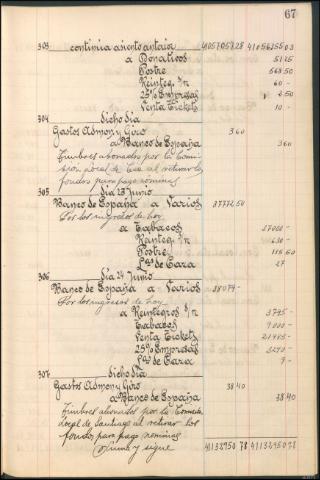 67
303 continúa asiento anterior 41057057.28 41056255 03
a Donativos 51 25
Postre 568 50
Reinteg. s/n 60 -
25% Empresas 2 50
Venta Tickets 10 -
304 dicho día
Gastos Admon y Giro 3 60
a Banco de España 3 60
Timbres abonados por la Comi-
sión Local de al retirar los
fondos para pago nominas
305 Día 23 Junio
Banco de España a Varios 37772 50
Por los ingresos de hoy
a Tabacos
Reinteg. s/n
Postre
27
306 Día 24 Junio
Banco de España a Varios 38074 -
Por los ingresos de hoy
a Reintegros s/n 3745 -
Tabacos 9000 -
Venta Tickets
25% Empresas
9 -
307 dicho día
Gastos Admon y Giro 38 40
a Banco de España 38 40
Timbres abonados por la Comisión
Local de Santiago al retirar los
fondos para pago nominas
Suma y sigue 41132950 78 41132950 78